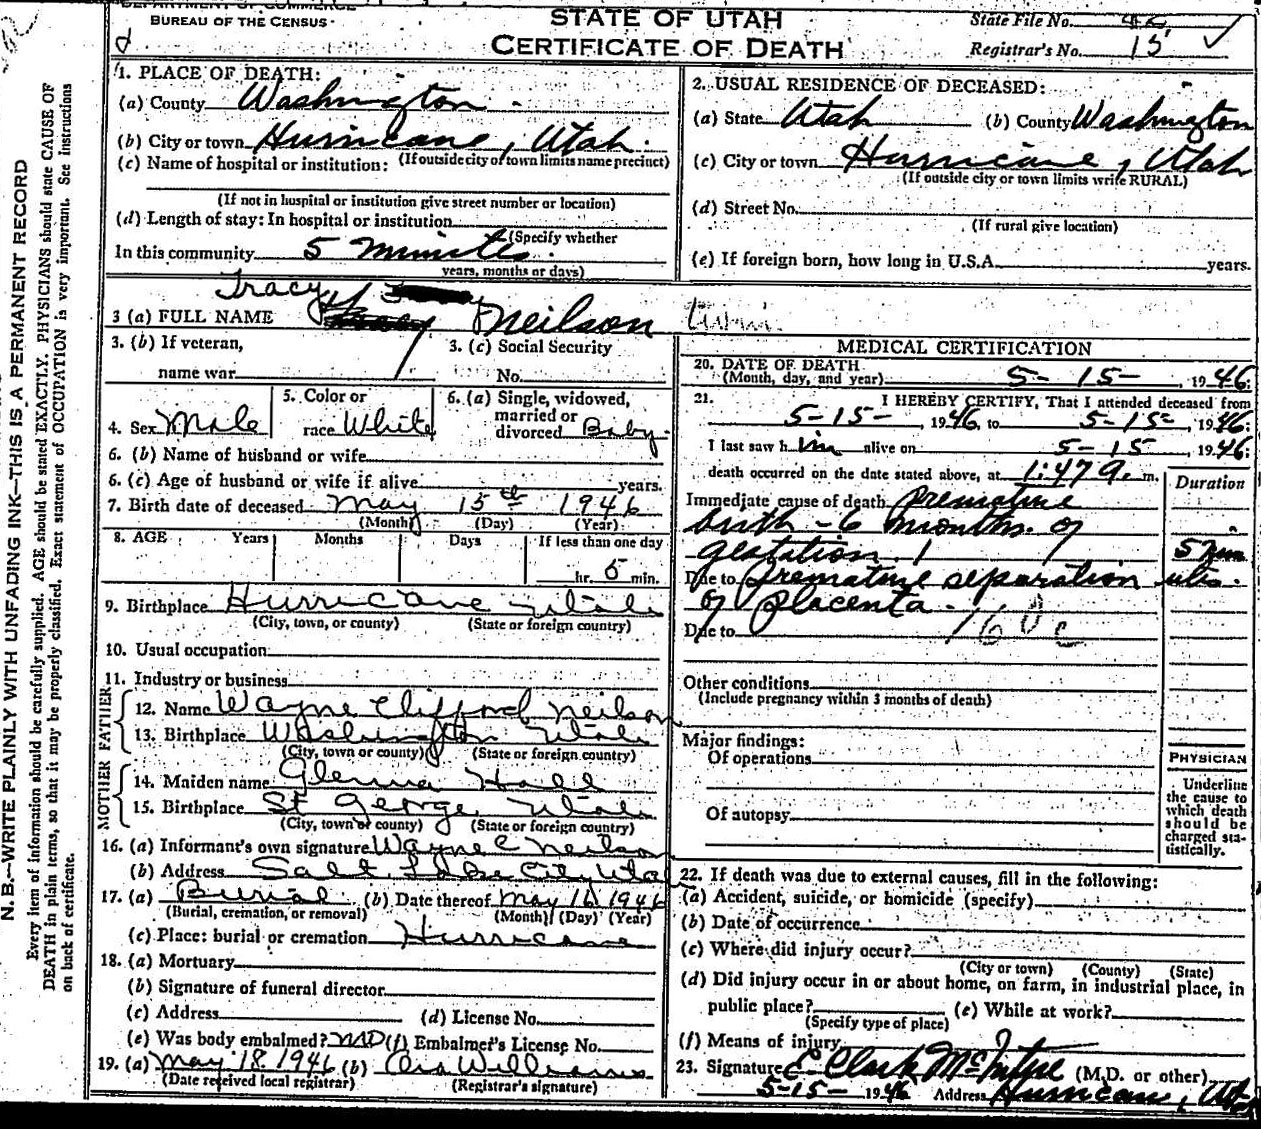 DEPARTMENT OF COMMERCE
BUREAU OF THE CENSUS
STATE OF UTAH
CERTIFICATE OF DEATH
State File No.
Registrar's No. 15
N. B.—WRITE PLAINLY WITH UNFADING INK—THIS IS A PERMANENT RECORD
Every item of information should be carefully supplied. AGE should be stated EXACTLY. PHYSICIANS should state CAUSE OF
DEATH in plain terms, so that it may be properly classified. Exact statement of OCCUPATION is very important. See instructions
on back of certificate.
1. PLACE OF DEATH:
(a) County Washington
(b) City or town Hurricane, Utah.
(If outside city or town limits name precinct)
(c) Name of hospital or institution:
(If not in hospital or institution give street number or location)
(d) Length of stay: In hospital or institution
(Specify whether
In this community 5 minutes.
years, months or days)
2. USUAL RESIDENCE OF DECEASED:
(a) State Utah (b) County Washington
(c) City or town Hurricane, Utah
(If outside city or town limits write RURAL)
(d) Street No.
(If rural give location)
(e) If foreign born, how long in U.S.A. years.
3 (a) FULL NAME Tracy Neilson
3. (b) If veteran,
name war
3. (c) Social Security
No.
4. Sex Male
5. Color or
race White
6. (a) Single, widowed,
married or
divorced Baby
6. (b) Name of husband or wife
6. (c) Age of husband or wife if alive years.
7. Birth date of deceased May 15th 1946
(Month) (Day) (Year)
8. AGE Years Months Days If less than one day
hr. 5 min.
9. Birthplace Hurricane Utah
(City, town, or county) (State or foreign country)
10. Usual occupation
11. Industry or business
FATHER
12. Name Wayne Clifford Neilson
13. Birthplace Washington Utah
(City, town or county) (State or foreign country)
MOTHER
14. Maiden name Glenna Hall
15. Birthplace St George, Utah
(City, town or county) (State or foreign country)
16. (a) Informant's own signature Wayne C Neilson
(b) Address Salt Lake City Utah
17. (a) Burial (b) Date thereof May 16 1946
(Burial, cremation, or removal) (Month) (Day) (Year)
(c) Place: burial or cremation Hurricane
18. (a) Mortuary
(b) Signature of funeral director
(c) Address (d) License No.
(e) Was body embalmed? No (f) Embalmer's License No.
19. (a) May 18 1946 (b) Ora Williams
(Date received local registrar) (Registrar's signature)
MEDICAL CERTIFICATION
20. DATE OF DEATH
(Month, day, and year) 5-15-, 1946:
21. I HEREBY CERTIFY, That I attended deceased from
5-15-, 1946, to 5-15-, 1946:
I last saw him alive on 5-15 1946:
death occurred on the date stated above, at 1:47 a. m.
Duration
Immediate cause of death premature
birth - 6 months of
gestation 5 min
Due to premature separation utes.
of placenta.
Due to
Other conditions
(Include pregnancy within 3 months of death)
Major findings:
Of operations
Of autopsy
PHYSICIAN
Underline
the cause to
which death
should be
charged sta-
tistically.
22. If death was due to external causes, fill in the following:
(a) Accident, suicide, or homicide (specify)
(b) Date of occurrence
(c) Where did injury occur?
(City or town) (County) (State)
(d) Did injury occur in or about home, on farm, in industrial place, in
public place? (e) While at work?
(Specify type of place)
(f) Means of injury
23. Signature E. Clark McIntyre (M.D. or other)
5-15- 1946 Address Hurricane, Utah